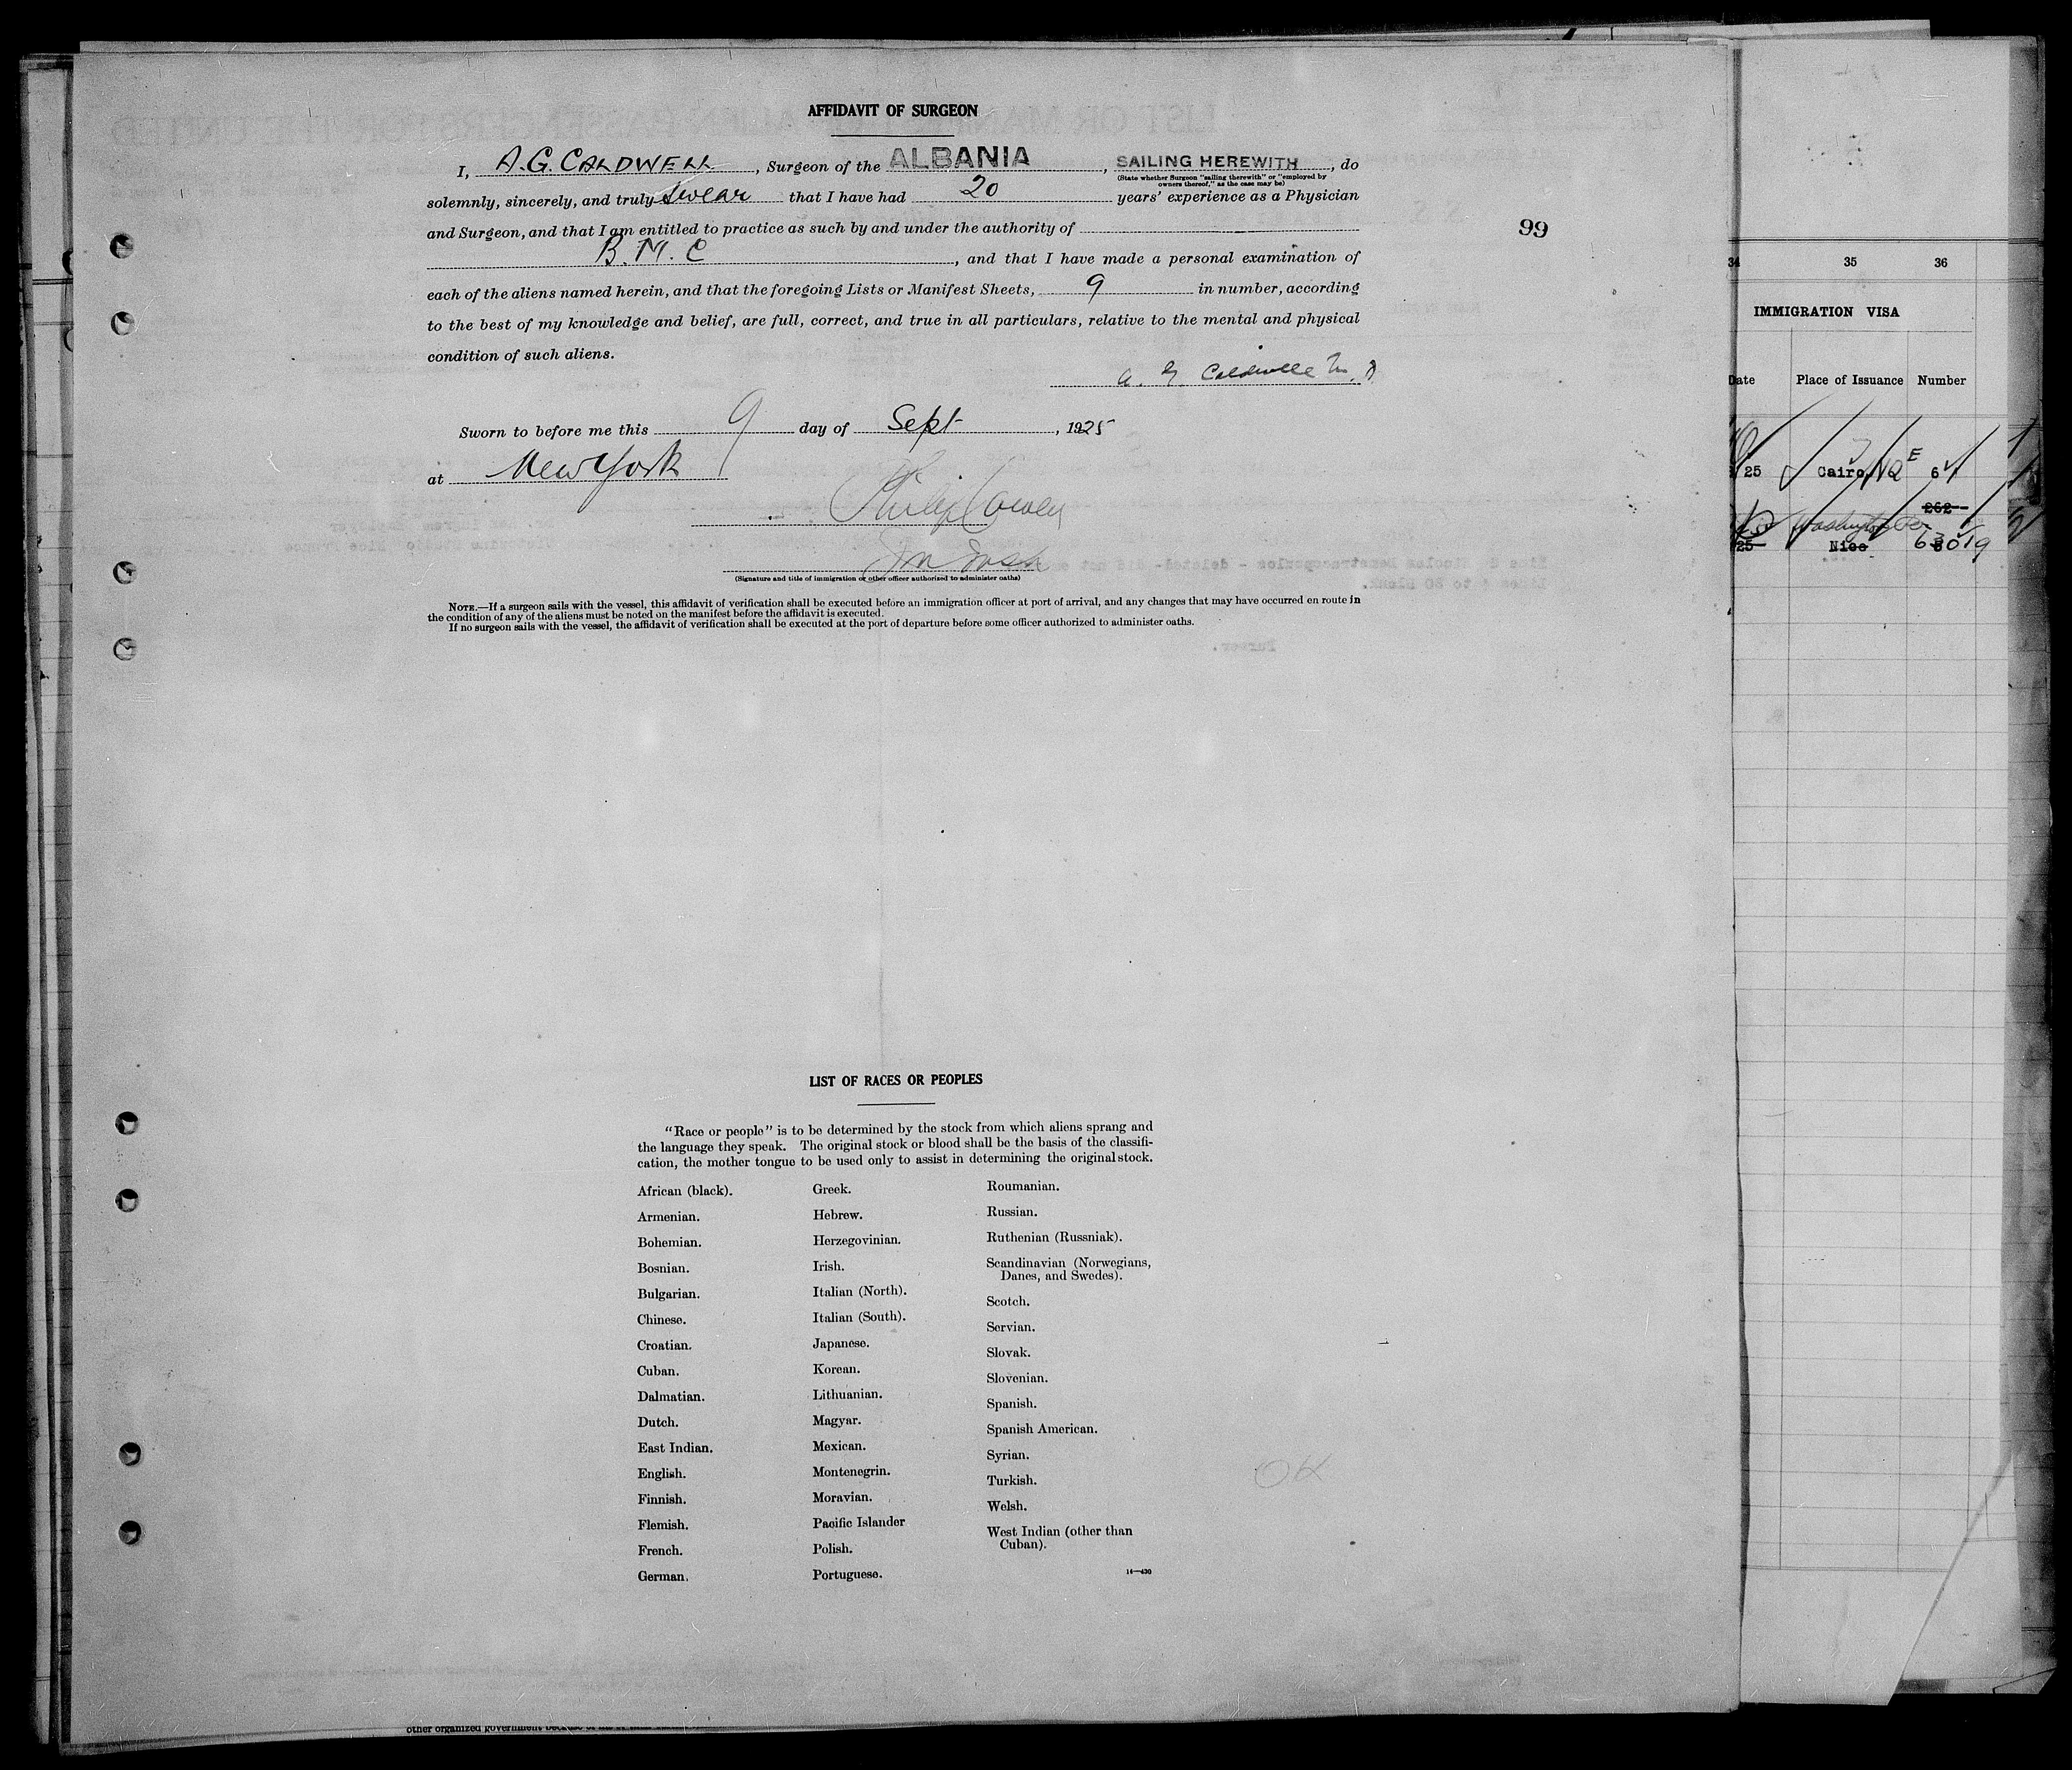 AFFIDAVIT OF SURGEON
I, A.G. CALDWELL, Surgeon of the ALBANIA, SAILING HEREWITH, do
(State whether Surgeon "sailing therewith" or "employed by
owners thereof," as the case may be)
solemnly, sincerely, and truly swear that I have had 20 years' experience as a Physician
and Surgeon, and that I am entitled to practice as such by and under the authority of
B.M.C, and that I have made a personal examination of
each of the aliens named herein, and that the foregoing Lists or Manifest Sheets, 9 in number, according
to the best of my knowledge and belief, are full, correct, and true in all particulars, relative to the mental and physical
condition of such aliens.
Sworn to before me this 9 day of Sept, 1925
at New York
(Signature and title of immigration or other officer authorized to administer oaths)
NOTE.—If a surgeon sails with the vessel, this affidavit of verification shall be executed before an immigration officer at port of arrival, and any changes that may have occurred en route in
the condition of any of the aliens must be noted on the manifest before the affidavit is executed.
If no surgeon sails with the vessel, the affidavit of verification shall be executed at the port of departure before some officer authorized to administer oaths.
99
LIST OF RACES OR PEOPLES
"Race or people" is to be determined by the stock from which aliens sprang and
the language they speak. The original stock or blood shall be the basis of the classifi-
cation, the mother tongue to be used only to assist in determining the original stock.
African (black).
Armenian.
Bohemian.
Bosnian.
Bulgarian.
Chinese.
Croatian.
Cuban.
Dalmatian.
Dutch.
East Indian.
English.
Finnish.
Flemish.
French.
German.
Greek.
Hebrew.
Herzegovinian.
Irish.
Italian (North).
Italian (South).
Japanese.
Korean.
Lithuanian.
Magyar.
Mexican.
Montenegrin.
Moravian.
Pacific Islander
Polish.
Portuguese.
Roumanian.
Russian.
Ruthenian (Russniak).
Scandinavian (Norwegians,
Danes, and Swedes).
Scotch.
Servian.
Slovak.
Slovenian.
Spanish.
Spanish American.
Syrian.
Turkish.
Welsh.
West Indian (other than
Cuban).
14—430
OK
34 35 36
IMMIGRATION VISA
Date Place of Issuance Number
25 Cairo
262
Washington
25 Nice
other organized government because of